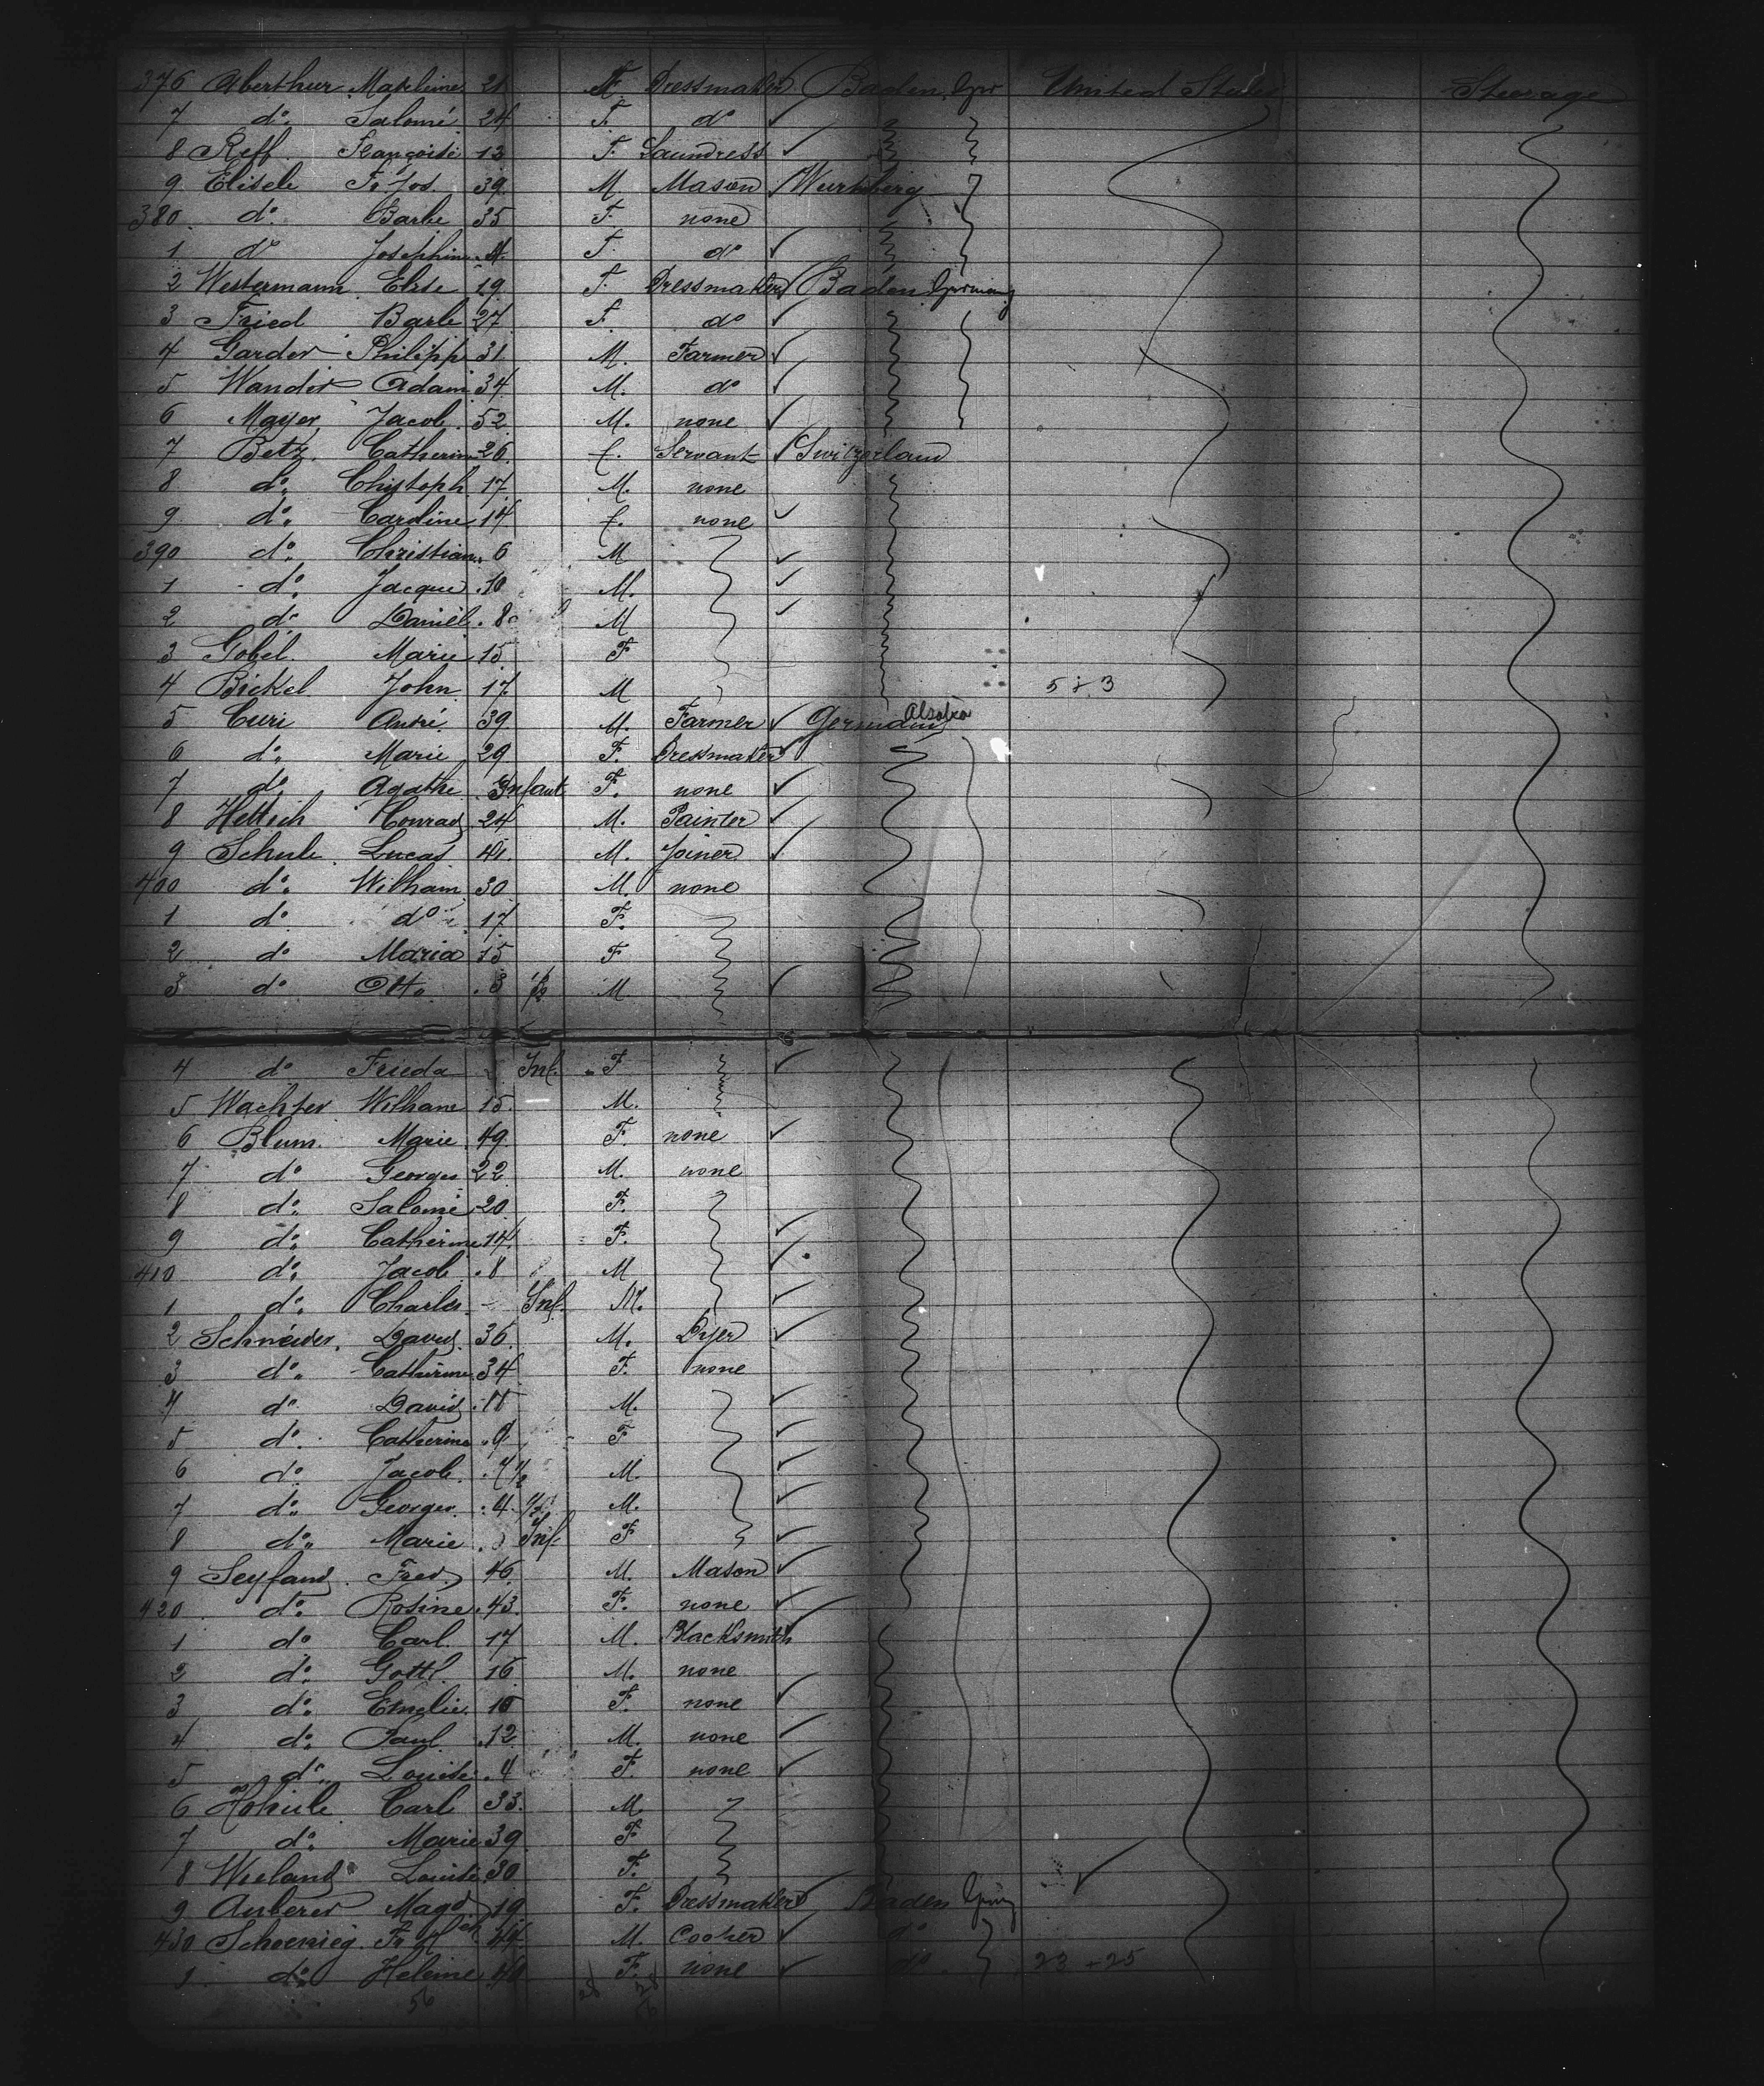 376 Aberthur Madeleine 21 F. Dressmaker Baden Ger United States Steerage
7 do. Salomé 24 F. do
8 Reff Françoise 13 F. Laundress
9 Eisele Fr. Jos. 39 M. Mason Wurtberg
380 do. Barbe 35 F. none
1 do Josephine F. do
2 Westermann Elise 19 F. Dressmaker Baden Germany
3 Fried Barb 27 F. do
4 Garder Philipp 31 M. Farmer
5 Wander Adam 34 M. do
6 Mayer Jacob 52 M. none
7 Betz Catherine 26 f. Servant Switzerland
8 do. Chistoph 17 M. none
9 do. Caroline 14 f. none
390 do. Christian 6 M
1 do. Jacques 10 M.
2 do Daniel 8 M
3 Gobel Marie 15 F
4 Bickel John 17 M 5 & 3
5 Curi André 39 M. Farmer Germany Alsatia
6 do. Marie 29 F. Dressmaker
7 do Agathe Infant F. none
8 Hettich Conrad 24 M. Painter
9 Schule Lucas 41 M. Joiner
400 do. William 30 M. none
1 do. do 17 F.
2 do Maria 15 F
3 do Otto 3 M
4 do Frieda Inf. F
5 Wachter Wilham 15 M.
6 Blum Marie 49 F. none
7 do Georges 22 M. none
8 do. Salomé 20 F.
9 do. Catherine 14 F.
410 do. Jacob 8 M
1 do. Charles Inf. M.
2 Schneider David 36 M. Dyer
3 do. Catherine 34 F. none
4 do. David 11 M.
5 do. Catherine 9 F
6 do. Jacob 7 1/2 M.
7 do. Georges 4 M.
8 do. Marie Inf F
9 Seyfand Fred 46 M. Mason
420 do. Rosine 43 F. none
1 do Carl 17 M. Blacksmith
2 do. Gottl 16 M. none
3 do. Emelie F. none
4 do. Paul 12 M. none
5 do. Louise 4 F. none
6 Hohule Carl 33 M.
7 do. Marie 39 F
8 Wieland Louise 30 F.
9 Auberer Magd 19 F. Dressmaker Baden Germ
430 Schoenieg Fr. 44 M. Cooper do
1 do. Heleine 40 F. none do 23 - 25
56